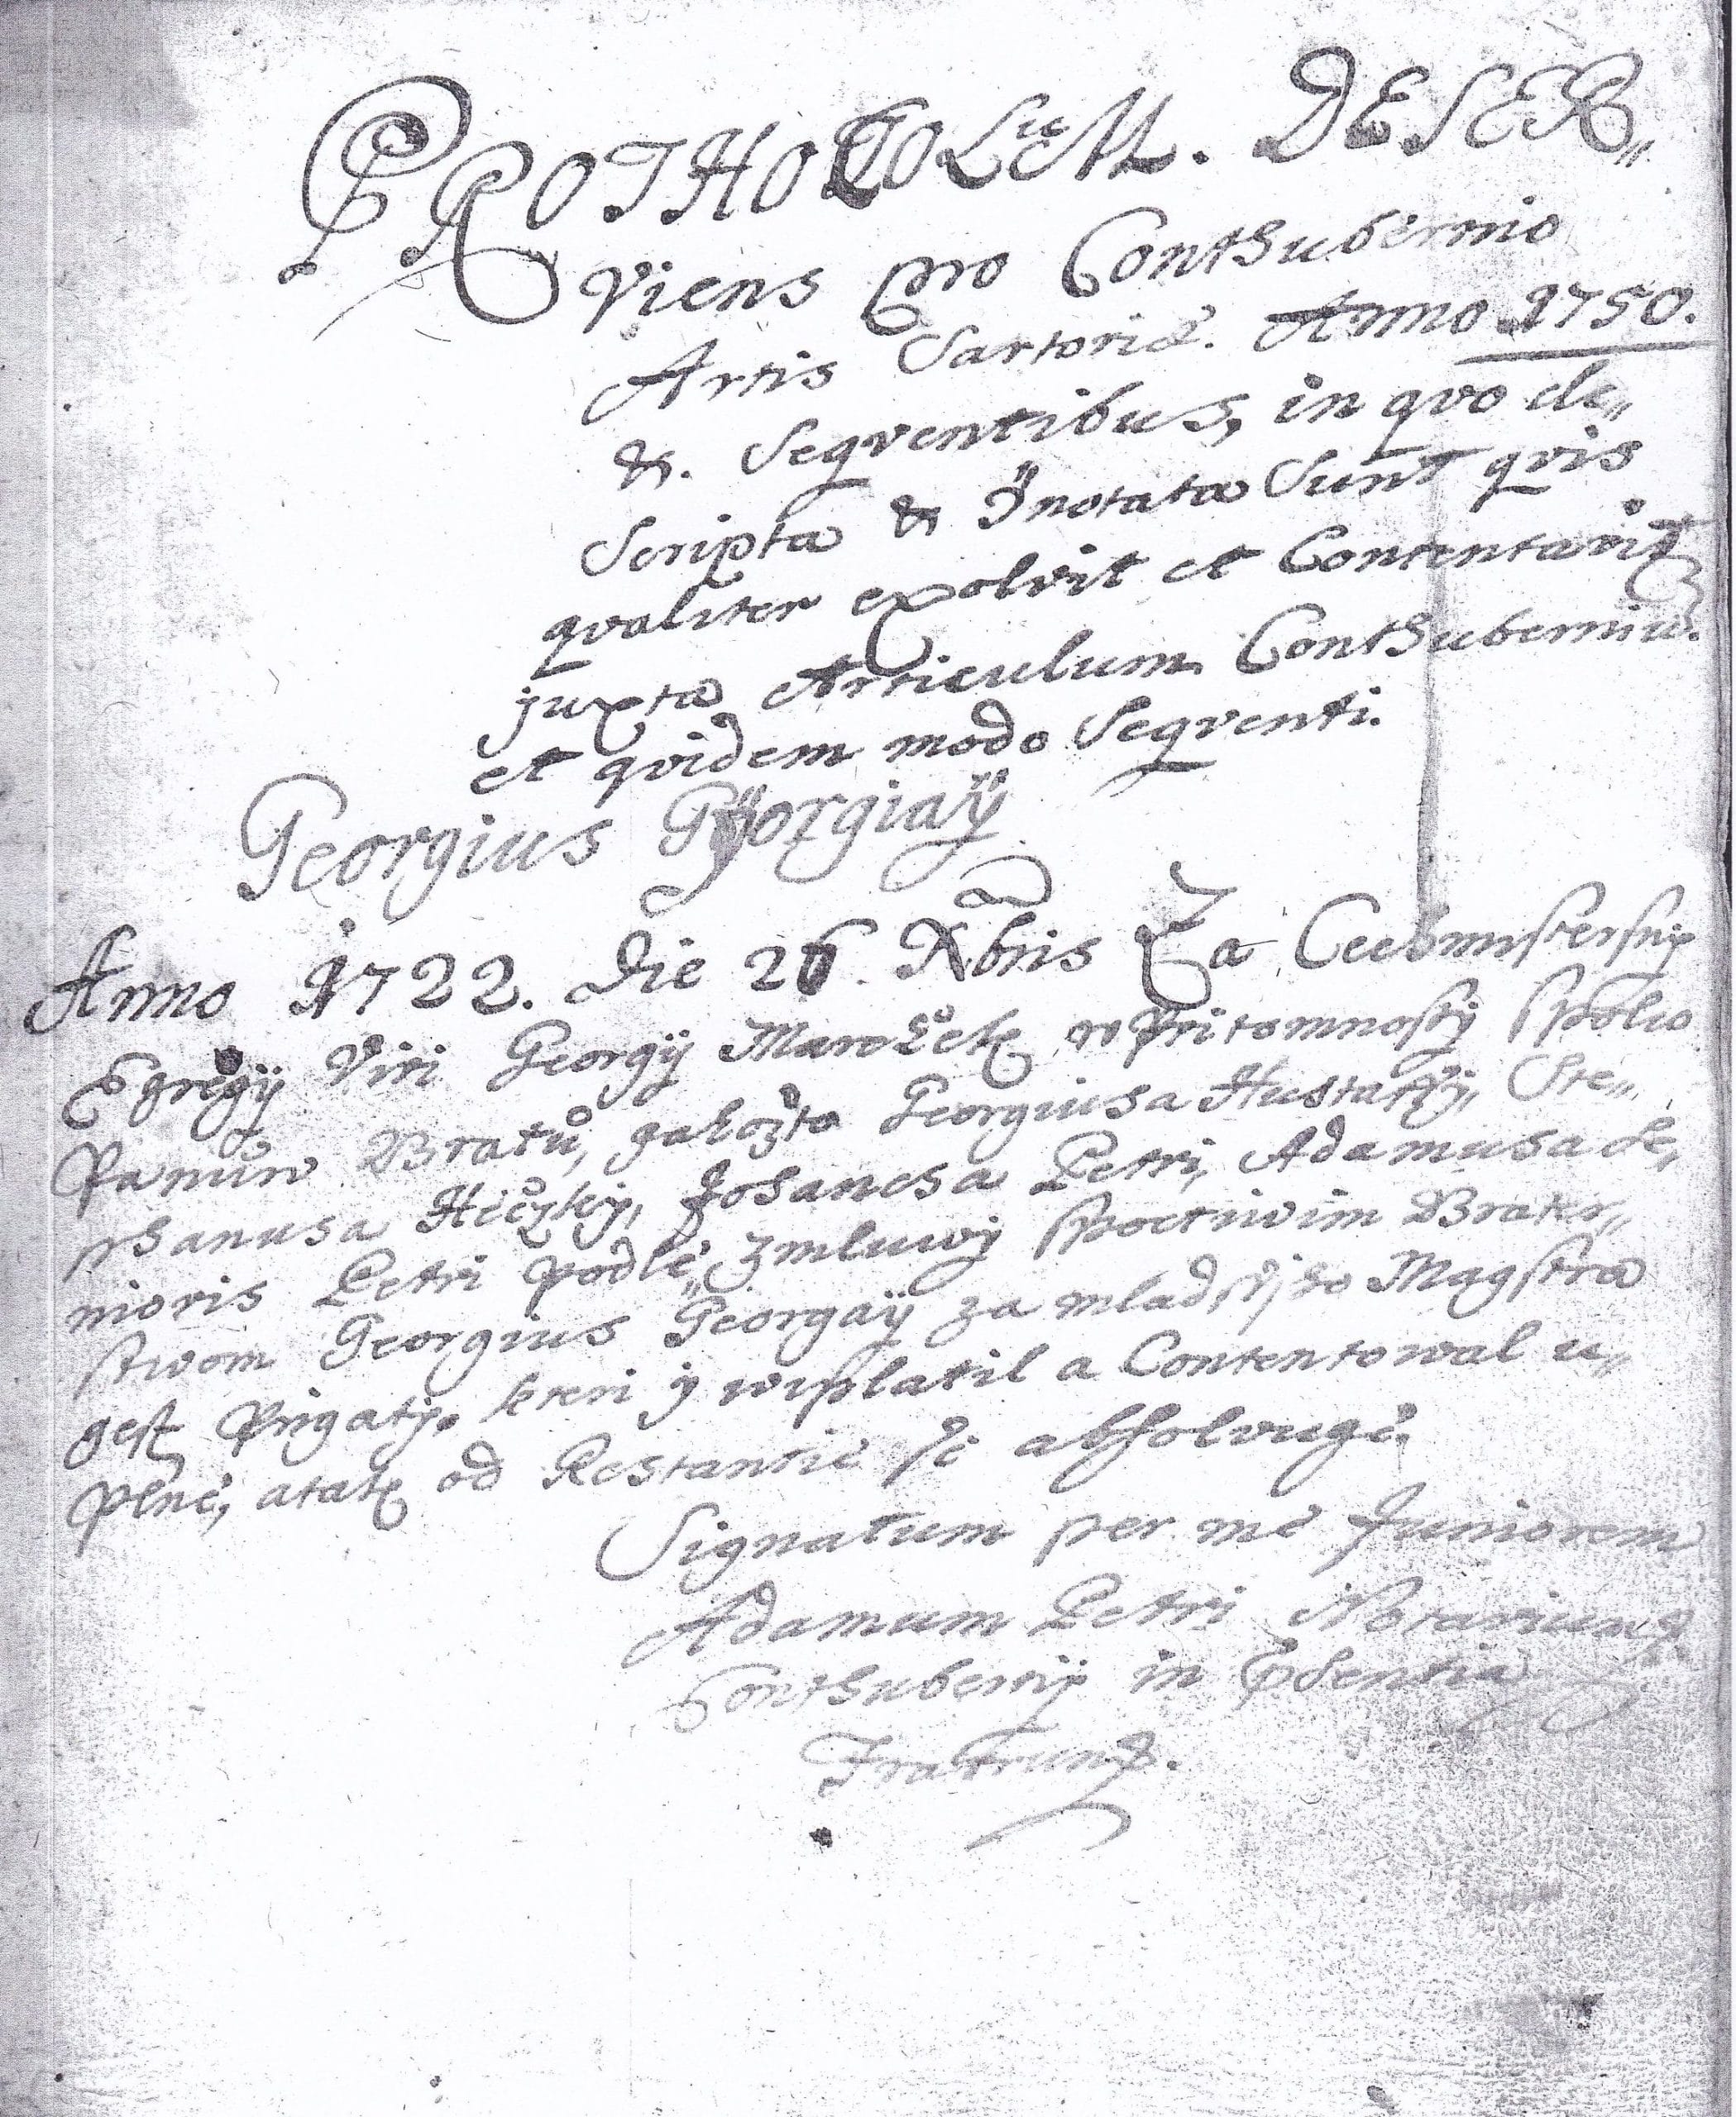 PROTHOCOLUM. DESER„
viens pro Conthubernio
Artis Sartoriæ. Anno 1750.
&. Seqventibus, in qvo de„
Scripta & Jnotata Sunt qvis
qvaliter exolvit et Contentavit
juxta Articulum Conthuberniu.
et qvidem modo Seqventi.
Georgius Gÿorgiaÿ
Anno 1722. Die 26. Xbris Za Cechmistersky
Egregÿ Viri Georgÿ w Pritomnosty spolu
Panuw Bratů, gakožto Georgiusa Ste„
phanusa Hiczky, Johanesa Petri, Adamusa Se„
nioris Petri podle zmluwy spoctiwim Brater„
stwom Georgius Georgaÿ za mladssyho Magstra
gest Prigaty. kteri y wiplatil a Contentowal u„
plne, atak od Restantie se absolvuge.
Signatum per me Juniorem
Adamum Petri Notarium
Conthuberny in Psentia
Fratrum.